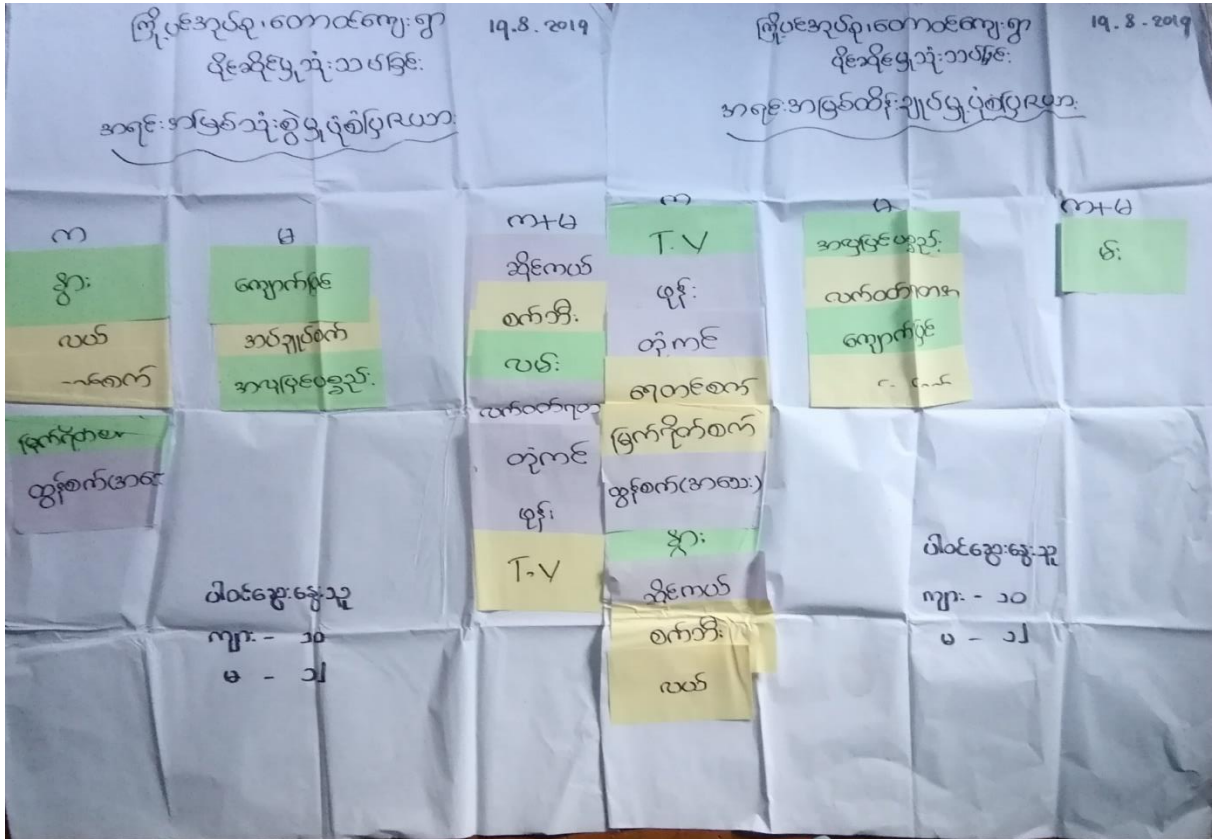 ကြို့ပင်အုပ်စု၊ တောဝင်ကျေးရွာ
19.8.2019
ပိုင်ဆိုင်မှုသုံးသပ်ခြင်း
အရင်းအမြစ်သုံးစွဲမှုပုံစံပြဇယား
က
နွား
လယ်
မြက်ရိတ်စက်
ထွန်စက်(အသေး
မ
ကျောက်ပြင်
အပ်ချုပ်စက်
အလှပြင်ပစ္စည်း
က+မ
ဆိုင်ကယ်
စက်ဘီး
လမ်း
လက်ဝတ်ရတ
တိုကင်
ဖုန်း
T.V
ပါဝင်ဆွေးနွေးသူ
ကျား - ၁၀
မ - ၁၂
ကြို့ပင်အုပ်စု၊ တောဝင်ကျေးရွာ
19.8.2019
ပိုင်ဆိုင်မှုသုံးသပ်ခြင်း
အရင်းအမြစ်ထိန်းချုပ်မှုပုံစံပြဇယား
က
T.V
ဖုန်း
တိုကင်
ရေတင်စက်
မြက်ရိတ်စက်
ထွန်စက်(အသေး)
နွား
ဆိုင်ကယ်
စက်ဘီး
လယ်
မ
အလှပြင်ပစ္စည်း
လက်ဝတ်ရတနာ
ကျောက်ပြင်
က+မ
မီး
ပါဝင်ဆွေးနွေးသူ
ကျား - ၁၀
မ - ၁၂